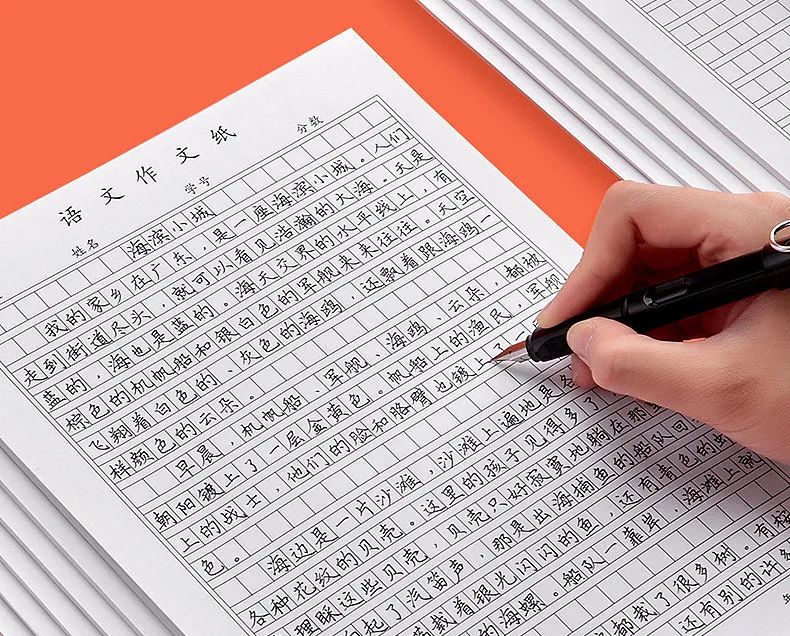 语文作文纸
姓名 学号 分数
海滨小城
我的家乡在广东，是一座海滨小城。人们
走到街道尽头，就可以看见浩瀚的大海。天是
蓝的，海也是蓝的。海天交界的水平线上，有
棕色的机帆船和银白色的军舰来来往往。天空
飞翔着白色的、灰色的海鸥，还飘着跟海鸥一
样颜色的云朵。
早晨，机帆船、军舰、海鸥、云朵，都被
朝阳镀上了一层金黄色。帆船上的渔民，军舰
上的战士，他们的脸和胳臂也镀上了
色。
海边是一片沙滩，沙滩上遍地是各
各种花纹的贝壳。这里的孩子见得多了
理睬这些贝壳，贝壳只好寂寞地躺在那里
起了汽笛声，那是出海捕鱼的船队回
满载着银光闪闪的鱼，还有青色的
的海螺。船队一靠岸，海滩上就
都栽了很多树。有
还有别的许多